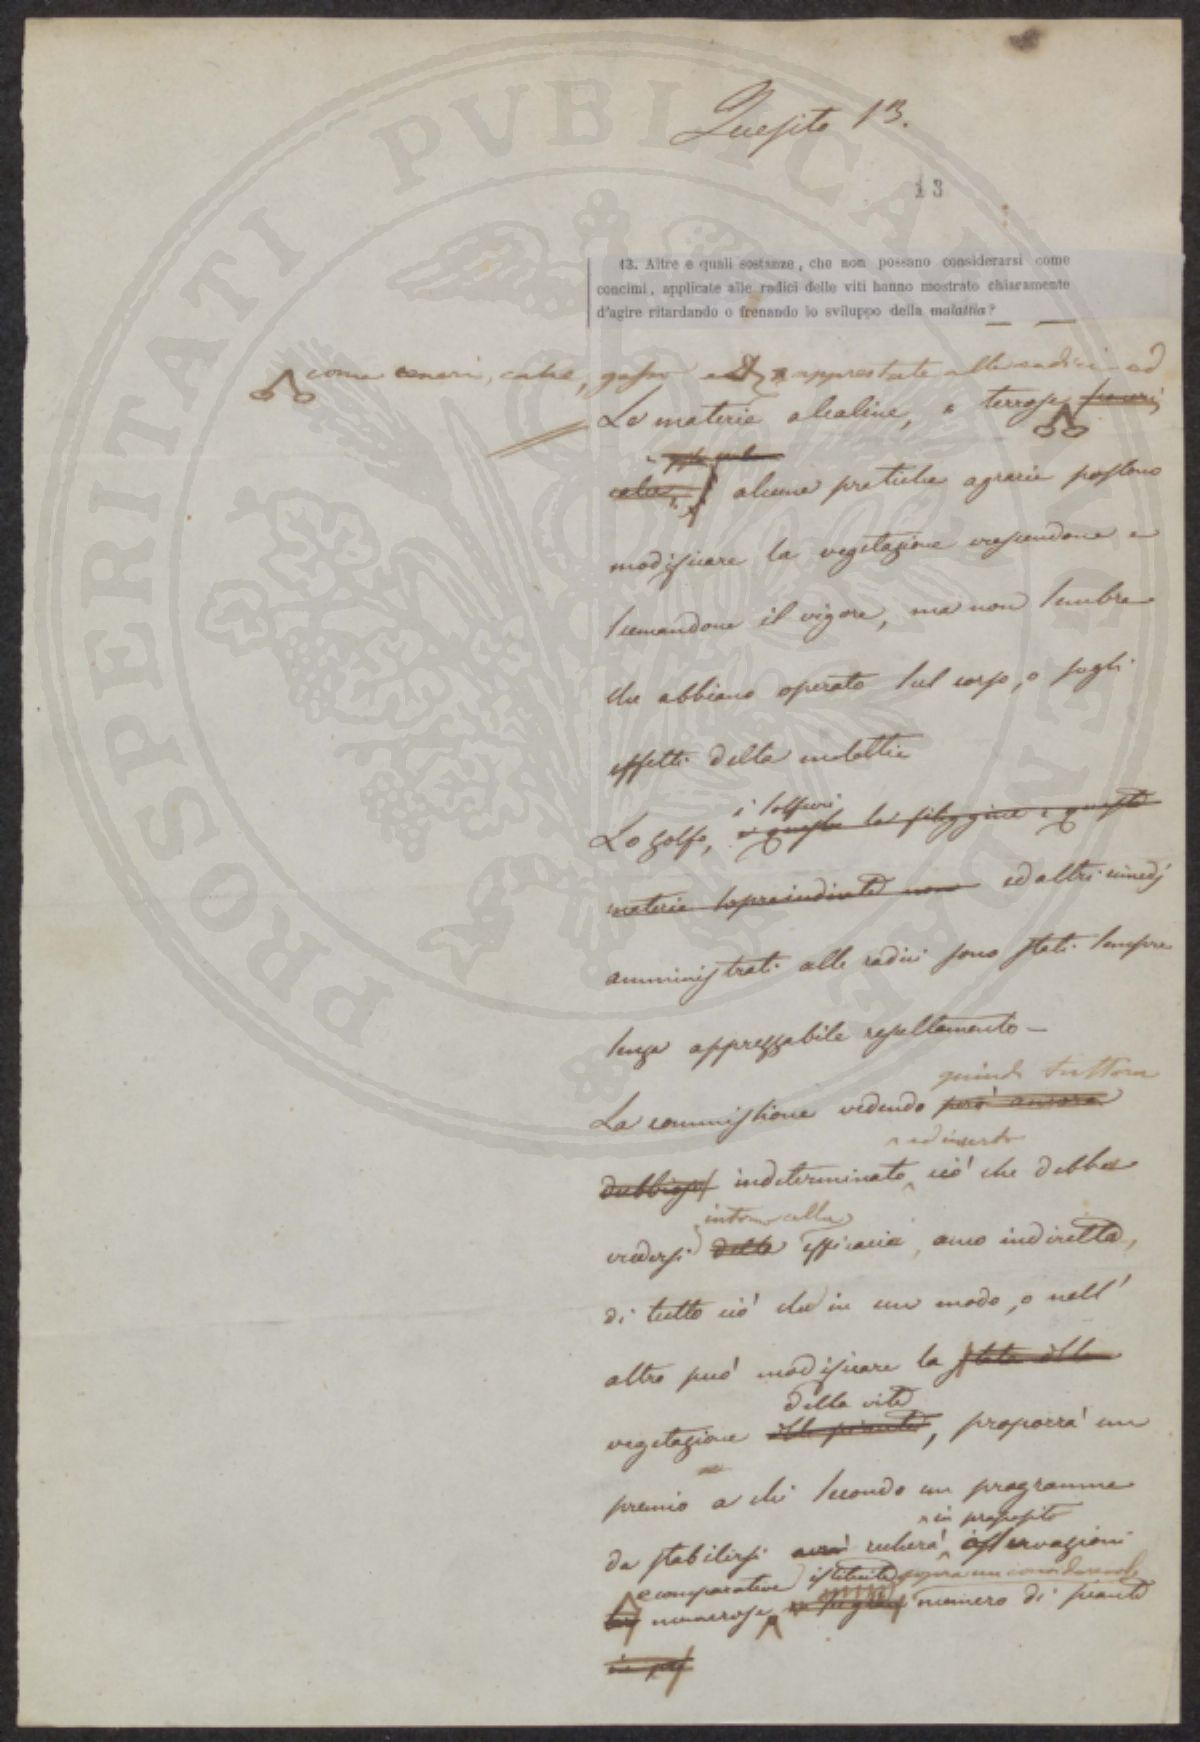 Quesito 13.
13
13. Altre e quali sostanze, che non possano considerarsi come
concimi, applicate alle radici delle viti hanno mostrato chiaramente
d'agire ritardando o frenando lo sviluppo della malattia?
come ceneri, calce, gesso apprestate alle radici ed
Le materie alcaline, e terrose
calce, alcune pratiche agrarie possono
modificare la vegetazione crescendone e
scemandone il vigore, ma non sembra
che abbiano operato sul corso, o sugli
effetti della malattia
i solfuri
Lo zolfo, la filiggine e queste
materie sopraindicate non ed altri rimedj
amministrati alle radici sono stati sempre
senza apprezzabile resultamento —
quindi tuttora
La commissione vedendo però ancora
ed incerto
dubbioso indeterminato ciò che debba
intorno alla
credersi della efficacia, anco indiretta,
di tutto ciò che in un modo, o nell'
altro può modificare la stato della
della vite
vegetazione delle piante, proporrà un
premio a chi secondo un programma
in proposito
da stabilirsi avrà recherà osservazioni
e comparative istituite sopra un considerevole
numerose numero di piante
PROSPERITATI PVBLICAE AVGENDAE